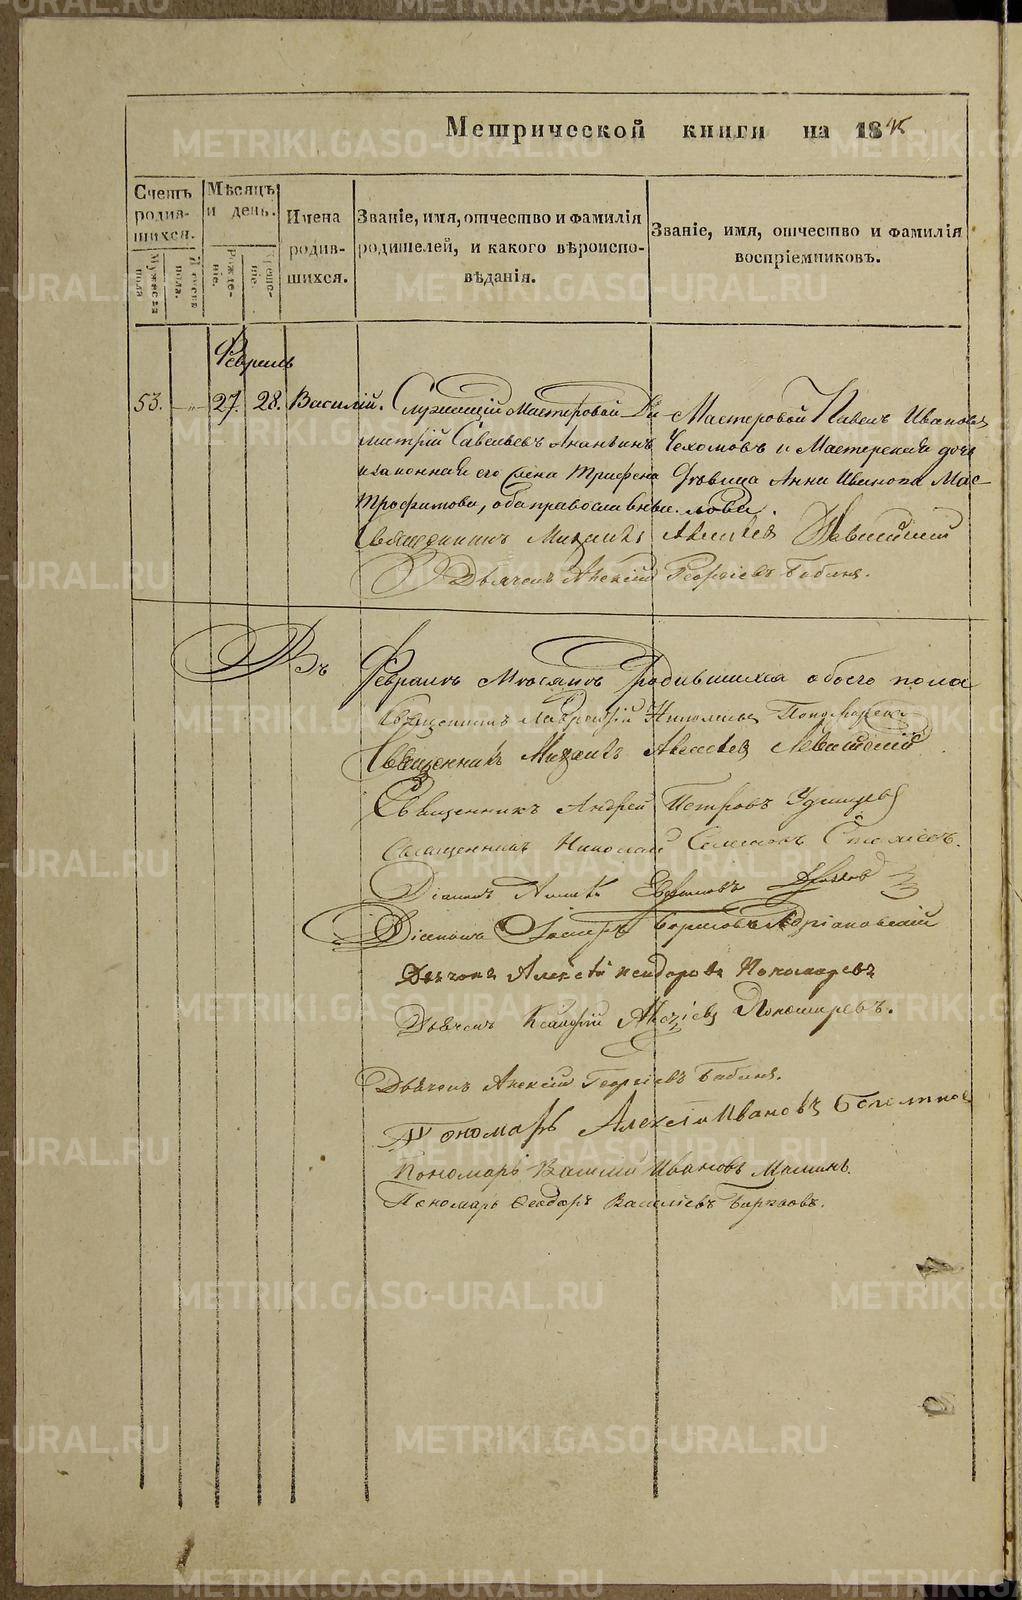 Метрической книги на 1845
Счетъ родив-шихся.
Мужеска пола
Женска пола.
Мѣсяцъ и день.
Рожде-ніе.
Креще-ніе.
Имена родив-шихся.
Званіе, имя, отчество и фамилія родителей, и какого вѣроиспо-вѣданія.
Званіе, имя, отчество и фамилія воспріемниковъ.
Февраль
53. 27. 28. Василій.
Служащій Мастеровой Ди-
митрій Савельевъ Ананьинъ
и законная его жена Трифена
Трофимова, оба православные.
Мастеровой Павелъ Ивановъ
Чехомовъ и Мастерская дочь
дѣвица Анна Иванова Мас-
лова.
Священникъ Михаилъ Алексѣевъ Левитскій
Дьячекъ Алексій Георгіевъ Бабинъ.
Въ Февралѣ Мѣсяцѣ Родившихся обоего пола
Священникъ Лаврентій Николаевъ Пономаревъ
Священникъ Михаилъ Алексѣевъ Левитскій
Священникъ Андрей Петровъ Удинцевъ
Священникъ Николай
Діаконъ
Діаконъ Іосифъ Борисовъ Адріановскій
Дьячекъ Алексѣй Исидоровъ Пономаревъ
Дьячекъ Пономаревъ.
Дьячекъ Алексій Георгіевъ Бабинъ.
Пономарь Алексѣй Ивановъ
Пономарь Василій Ивановъ
Пономарь Ѳеодоръ Василіевъ
METRIKI.GASO-URAL.RU